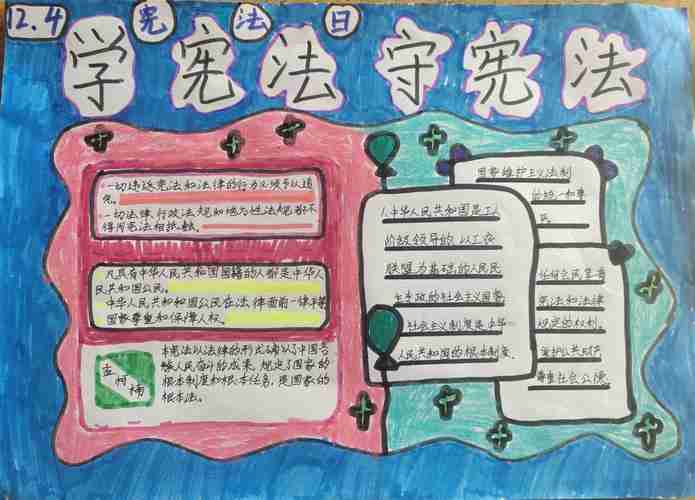 12.4 宪法日
学宪法 守宪法
一切违反宪法和法律的行为必须予以追
究。
一切法律、行政法规和地方性法规都不
得同宪法相抵触。
凡具有中华人民共和国国籍的人都是中华人
民共和国公民。
中华人民共和国公民在法律面前一律平等
国家尊重和保障人权。
本宪法以法律的形式确认了中国各
族人民奋斗的成果，规定了国家的
根本制度和根本任务，是国家的
根本法。
中华人民共和国是工人
阶级领导的以工农
联盟为基础的人民民
主专政的社会主义国家
社会主义制度是中华
人民共和国的根本制度。
国家维护社会主义法制
的统一和尊
宪法和法律
规定的权利。
爱护公共财产
尊重社会公德